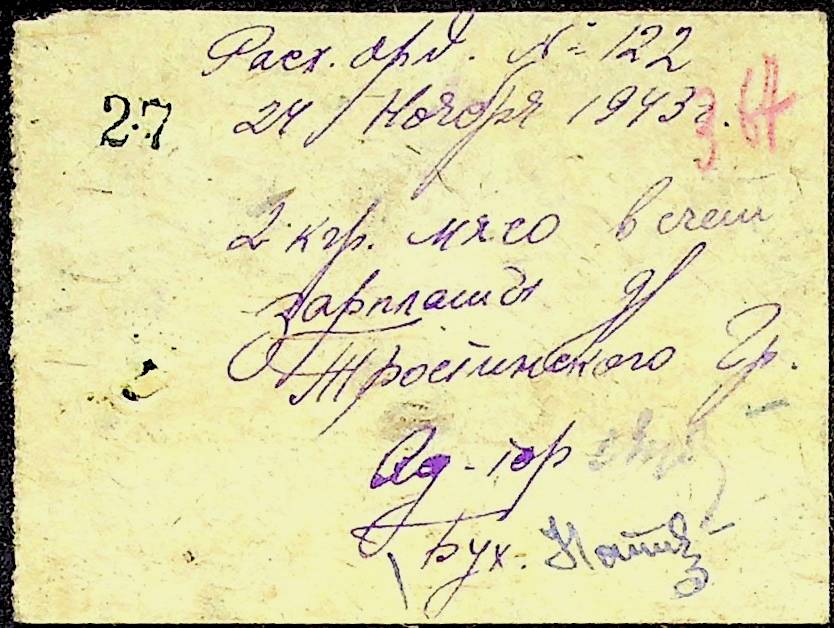 Расх. орд. № 122
27 24 Ноября 1943 г.
2 кгр. мясо в счет
зарплаты
Тростинского Гр.
Ад-тор
Бух.